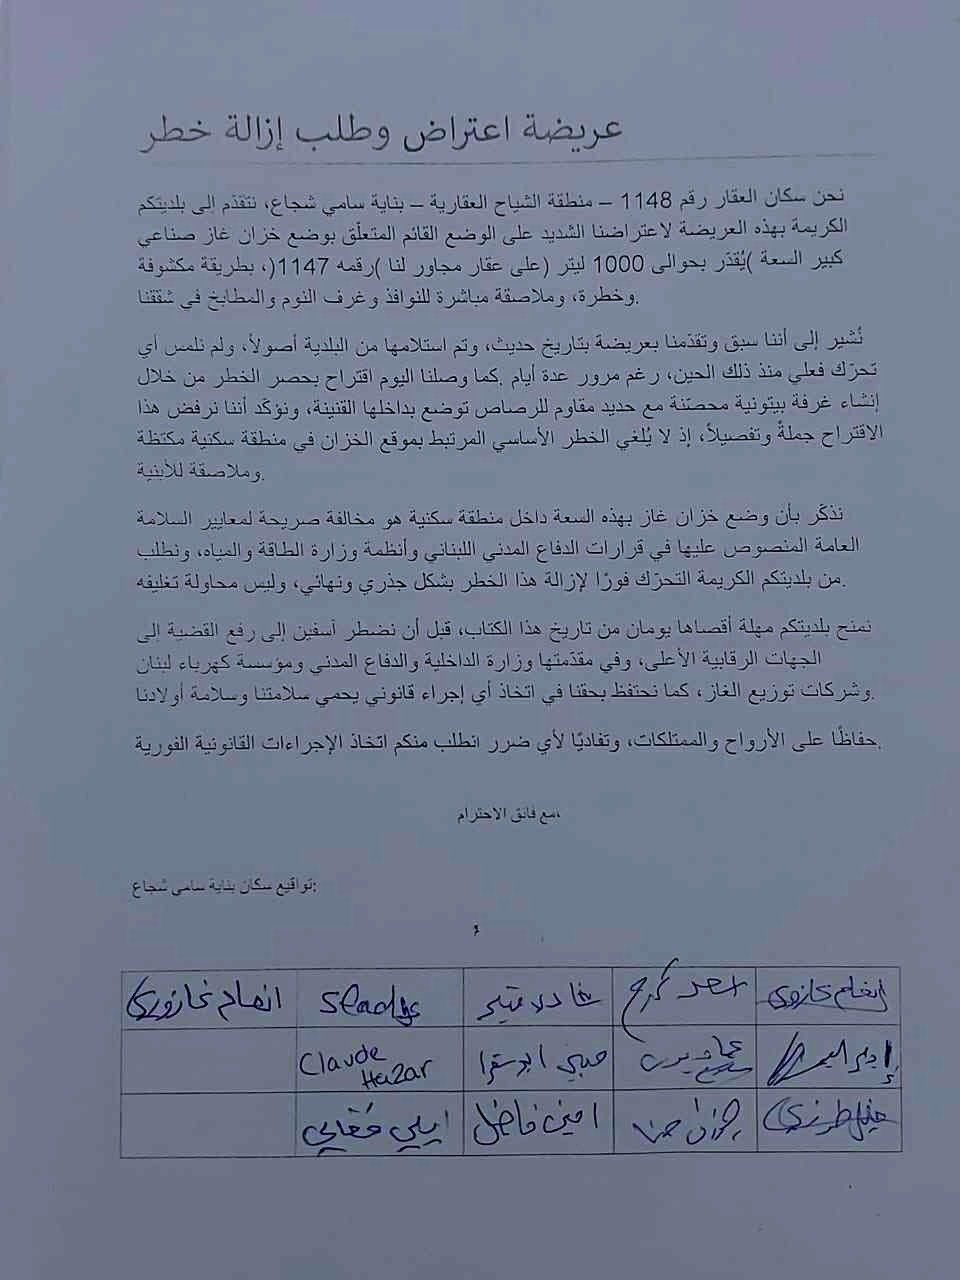 عريضة اعتراض وطلب إزالة خطر
نحن سكان العقار رقم 1148 – منطقة الشياح العقارية – بناية سامي شجاع، نتقدّم إلى بلديتكم
الكريمة بهذه العريضة لاعتراضنا الشديد على الوضع القائم المتعلّق بوضع خزان غاز صناعي
كبير السعة )يُقدّر بحوالى 1000 ليتر (على عقار مجاور لنا )رقمه 1147(، بطريقة مكشوفة
وخطرة، وملاصقة مباشرة للنوافذ وغرف النوم والمطابخ في شققنا.
نُشير إلى أننا سبق وتقدّمنا بعريضة بتاريخ حديث، وتم استلامها من البلدية أصولاً، ولم نلمس أي
تحرّك فعلي منذ ذلك الحين، رغم مرور عدة أيام .كما وصلنا اليوم اقتراح بحصر الخطر من خلال
إنشاء غرفة بيتونية محصّنة مع حديد مقاوم للرصاص توضع بداخلها القنينة، ونؤكّد أننا نرفض هذا
الاقتراح جملةً وتفصيلاً، إذ لا يُلغي الخطر الأساسي المرتبط بموقع الخزان في منطقة سكنية مكتظة
وملاصقة للأبنية.
نذكّر بأن وضع خزان غاز بهذه السعة داخل منطقة سكنية هو مخالفة صريحة لمعايير السلامة
العامة المنصوص عليها في قرارات الدفاع المدني اللبناني وأنظمة وزارة الطاقة والمياه، ونطلب
من بلديتكم الكريمة التحرّك فورًا لإزالة هذا الخطر بشكل جذري ونهائي، وليس محاولة تغليفه.
نمنح بلديتكم مهلة أقصاها يومان من تاريخ هذا الكتاب، قبل أن نضطر آسفين إلى رفع القضية إلى
الجهات الرقابية الأعلى، وفي مقدّمتها وزارة الداخلية والدفاع المدني ومؤسسة كهرباء لبنان
وشركات توزيع الغاز، كما نحتفظ بحقنا في اتخاذ أي إجراء قانوني يحمي سلامتنا وسلامة أولادنا.
حفاظًا على الأرواح والممتلكات، وتفاديًا لأي ضرر انطلب منكم اتخاذ الإجراءات القانونية الفورية.
مع فائق الاحترام،
تواقيع سكان بناية سامي شجاع:
انعام خازوري
Claude Hazar
امين فاضل
ايلي فغالي